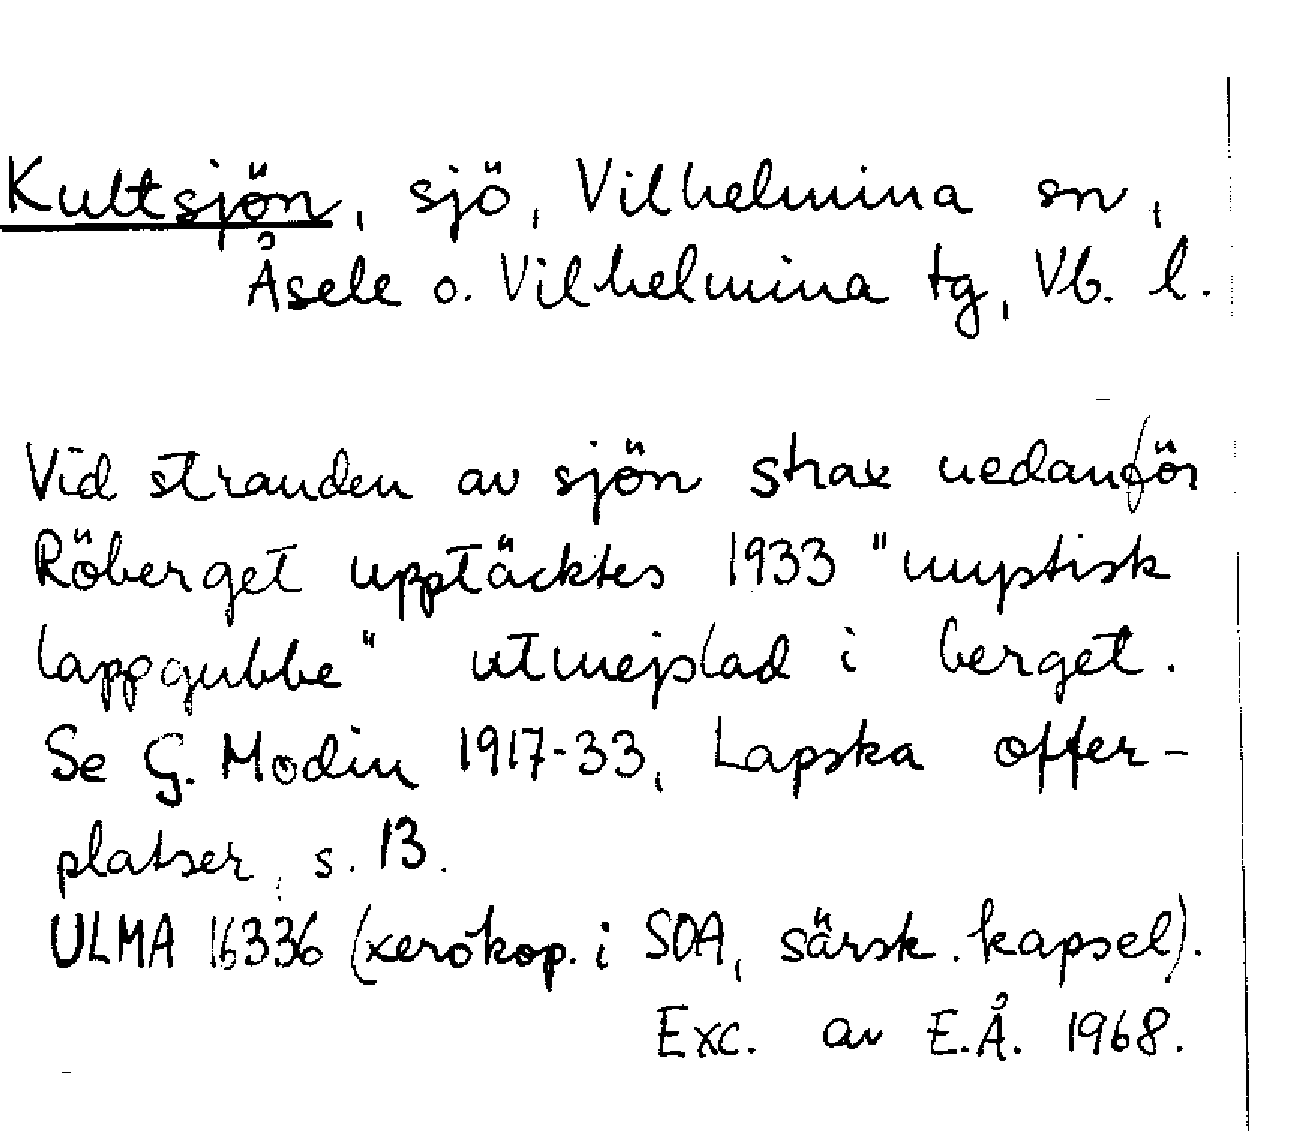 Kultsjön, sjö, Vilhelmina sn,
Åsele o. Vilhelmina tg, Vb. l.
Vid stranden av sjön strax nedanför
Röberget upptäcktes 1933 "mystisk
lappgubbe" utmejslad i berget.
Se G. Modin 1917-33, Lapska offer-
platser, s. 13.
ULMA 16336 (xerokop. i SOA, särsk. kapsel).
Exc. av E.Å. 1968.